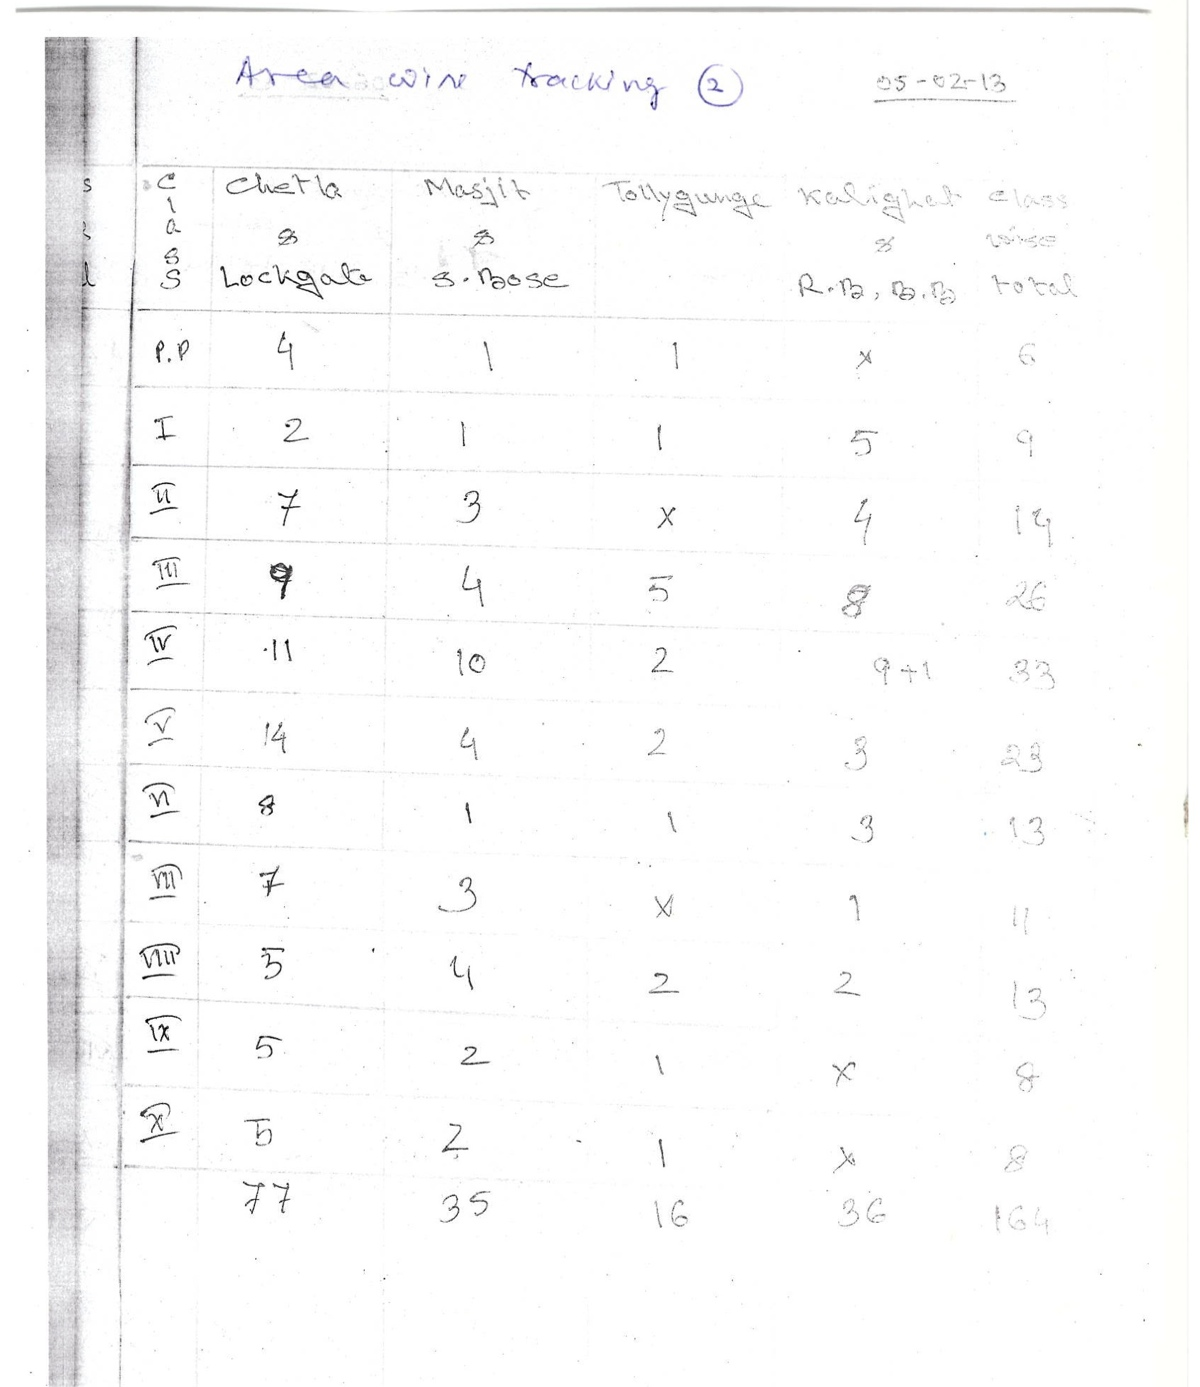 Area wise tracking 2 05-02-13
Class Chetla & Lockgate Masjit & S. Bose Tollygunge Kalighat & R.B, B.B Class wise total
P.P 4 1 1 x 6
I 2 1 1 5 9
II 7 3 x 4 14
III 9 4 5 8 26
IV 11 10 2 9+1 33
V 14 4 2 3 23
VI 8 1 1 3 13
VII 7 3 x 1 11
VIII 5 4 2 2 13
IX 5 2 1 x 8
X 5 2 1 x 8
77 35 16 36 164